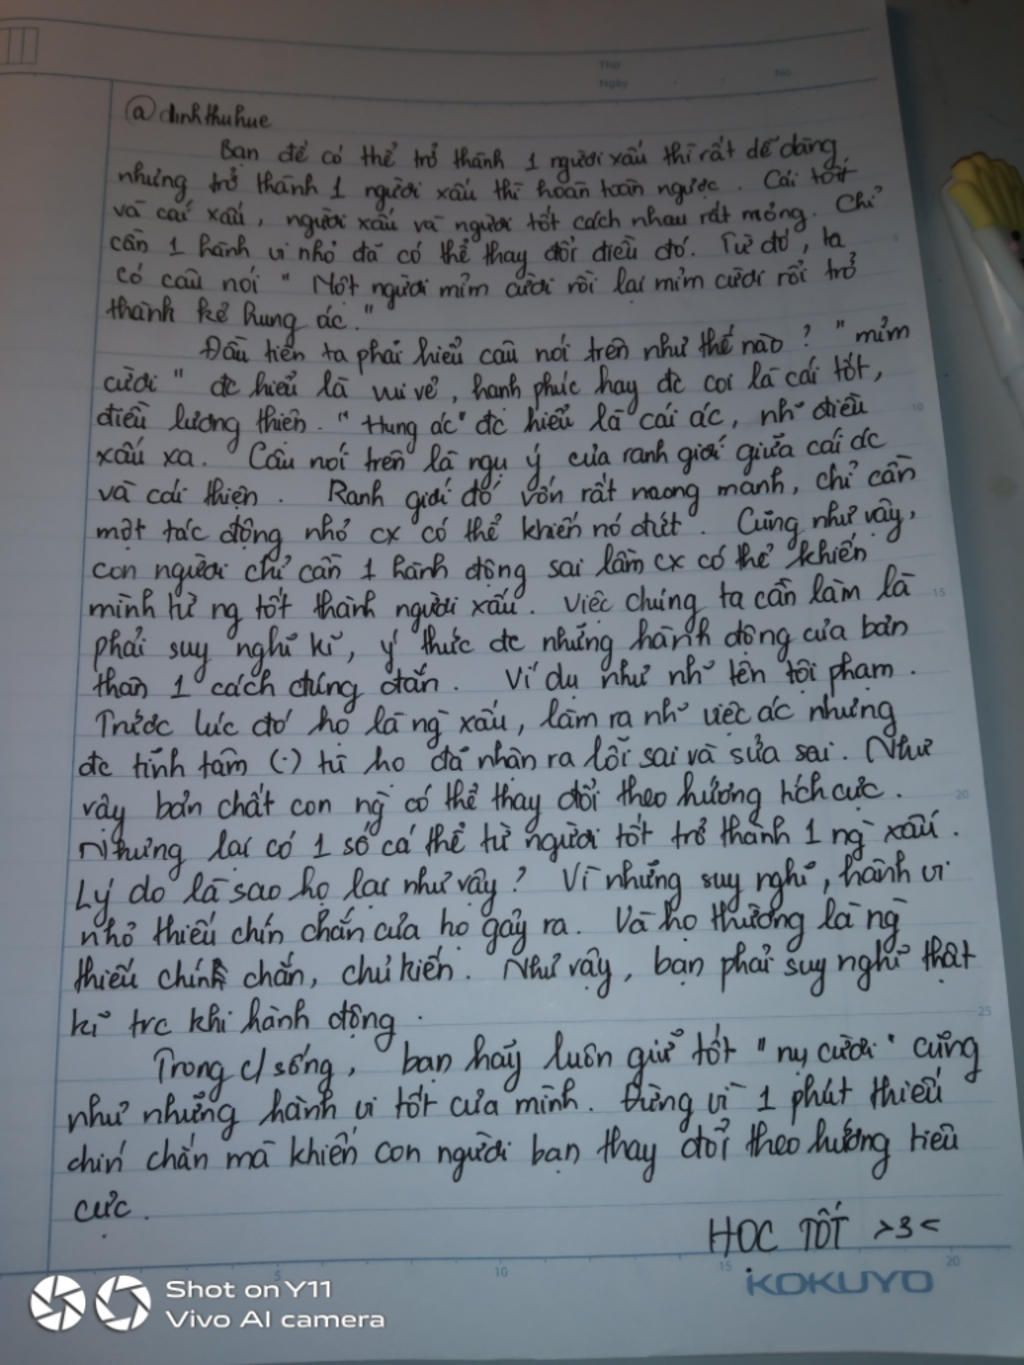 Thứ
Ngày
No.
@dinhthuhue
Bạn để có thể trở thành 1 người xấu thì rất dễ dàng
nhưng trở thành 1 người xấu thì hoàn toàn ngược. Cái tốt
và cái xấu, người xấu và người tốt cách nhau rất mỏng. Chỉ
cần 1 hành vi nhỏ đã có thể thay đổi điều đó. Từ đó, ta
có câu nói " Một người mỉm cười rồi lại mỉm cười rồi trở
thành kẻ hung ác."
Đầu tiên ta phải hiểu câu nói trên như thế nào? "mỉm
cười" đc hiểu là vui vẻ, hạnh phúc hay đc coi là cái tốt,
điều lương thiện. "Hung ác" đc hiểu là cái ác, nh~ điều
xấu xa. Câu nói trên là ngụ ý của ranh giới giữa cái ác
và cái thiện. Ranh giới đó vốn rất mong manh, chỉ cần
một tác động nhỏ cx có thể khiến nó đứt. Cũng như vậy,
con người chỉ cần 1 hành động sai lầm cx có thể khiến
mình từ ng tốt thành người xấu. Việc chúng ta cần làm là
phải suy nghĩ kĩ, ý thức đc những hành động của bản
thân 1 cách đúng đắn. Ví dụ như nh~ tên tội phạm.
Trước lúc đó họ là ng` xấu, làm ra nh~ việc ác nhưng
đc tĩnh tâm (.) tù họ đã nhận ra lỗi sai và sửa sai. Như
vậy bản chất con ng` có thể thay đổi theo hướng tích cực.
Nhưng lại có 1 số cá thể từ người tốt trở thành 1 ng` xấu.
Lý do là sao họ lại như vậy? Vì những suy nghĩ, hành vi
nhỏ thiếu chín chắn của họ gây ra. Và họ thường là ng`
thiếu chính chắn, chủ kiến. Như vậy, bạn phải suy nghĩ thật
kĩ trc khi hành động.
Trong c/sống, bạn hãy luôn giữ tốt "nụ cười" cũng
như những hành vi tốt của mình. Đừng vì 1 phút thiếu
chín chắn mà khiến con người bạn thay đổi theo hướng tiêu
cực.
HỌC TỐT >3<
5 10 15 20
KOKUYO
Shot on Y11
Vivo AI camera